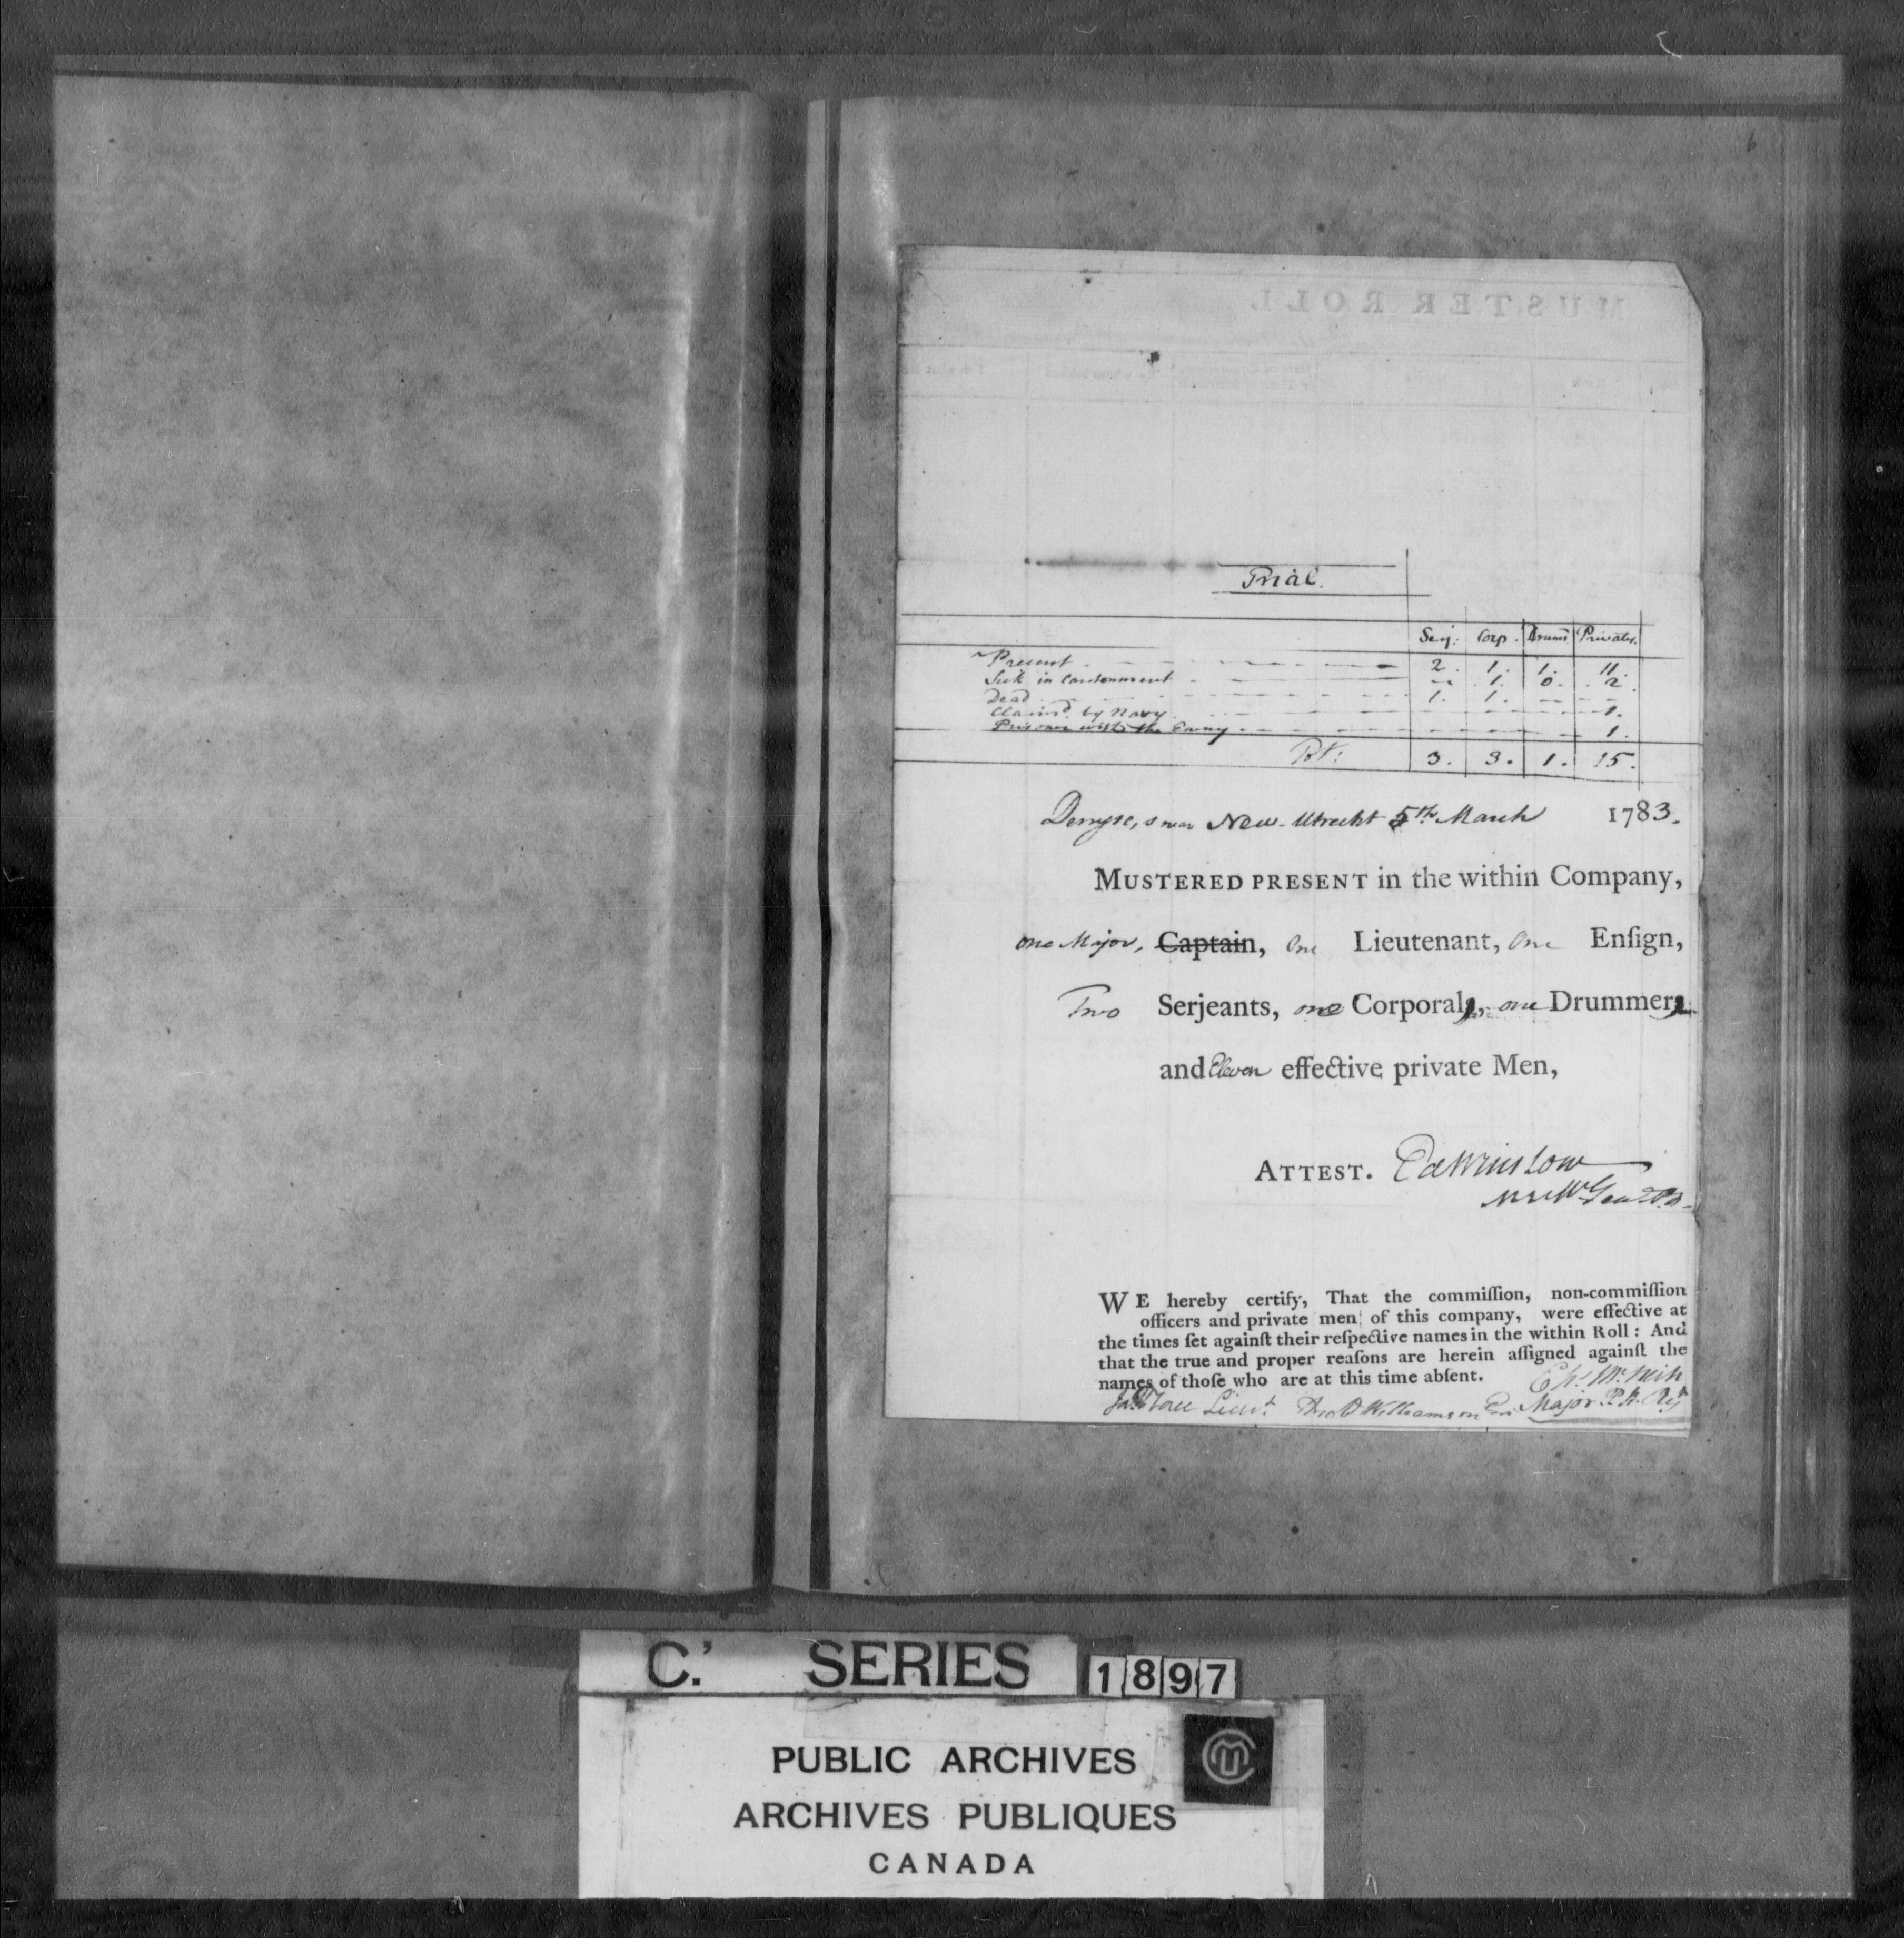 6
MUSTER ROLL
Trial.
Serj. Corp. Drumr Privates.
Present - - - 2. 1. 1. 11.
Sick in Cantonment - - - 1. 0. 2.
Dead - - 1. 1. - -
Claim'd by Navy - - - - 1.
Prisoner with the Enemy - - - - 1.
3. 3. 1. 15.
near New-Utrecht 5th March 1783.
MUSTERED PRESENT in the within Company,
one Major, Captain, One Lieutenant, One Enſign,
Two Serjeants, one Corporal, one Drummer
and Eleven effective private Men,
ATTEST. Ed Winslow
WE hereby certify, That the commiſſion, non-commiſſion
officers and private men of this company, were effective at
the times ſet againſt their reſpective names in the within Roll: And
that the true and proper reaſons are herein aſſigned againſt the
names of thoſe who are at this time abſent.
Lieut. Williamson Major
C.' SERIES 1897
PUBLIC ARCHIVES
ARCHIVES PUBLIQUES
CANADA